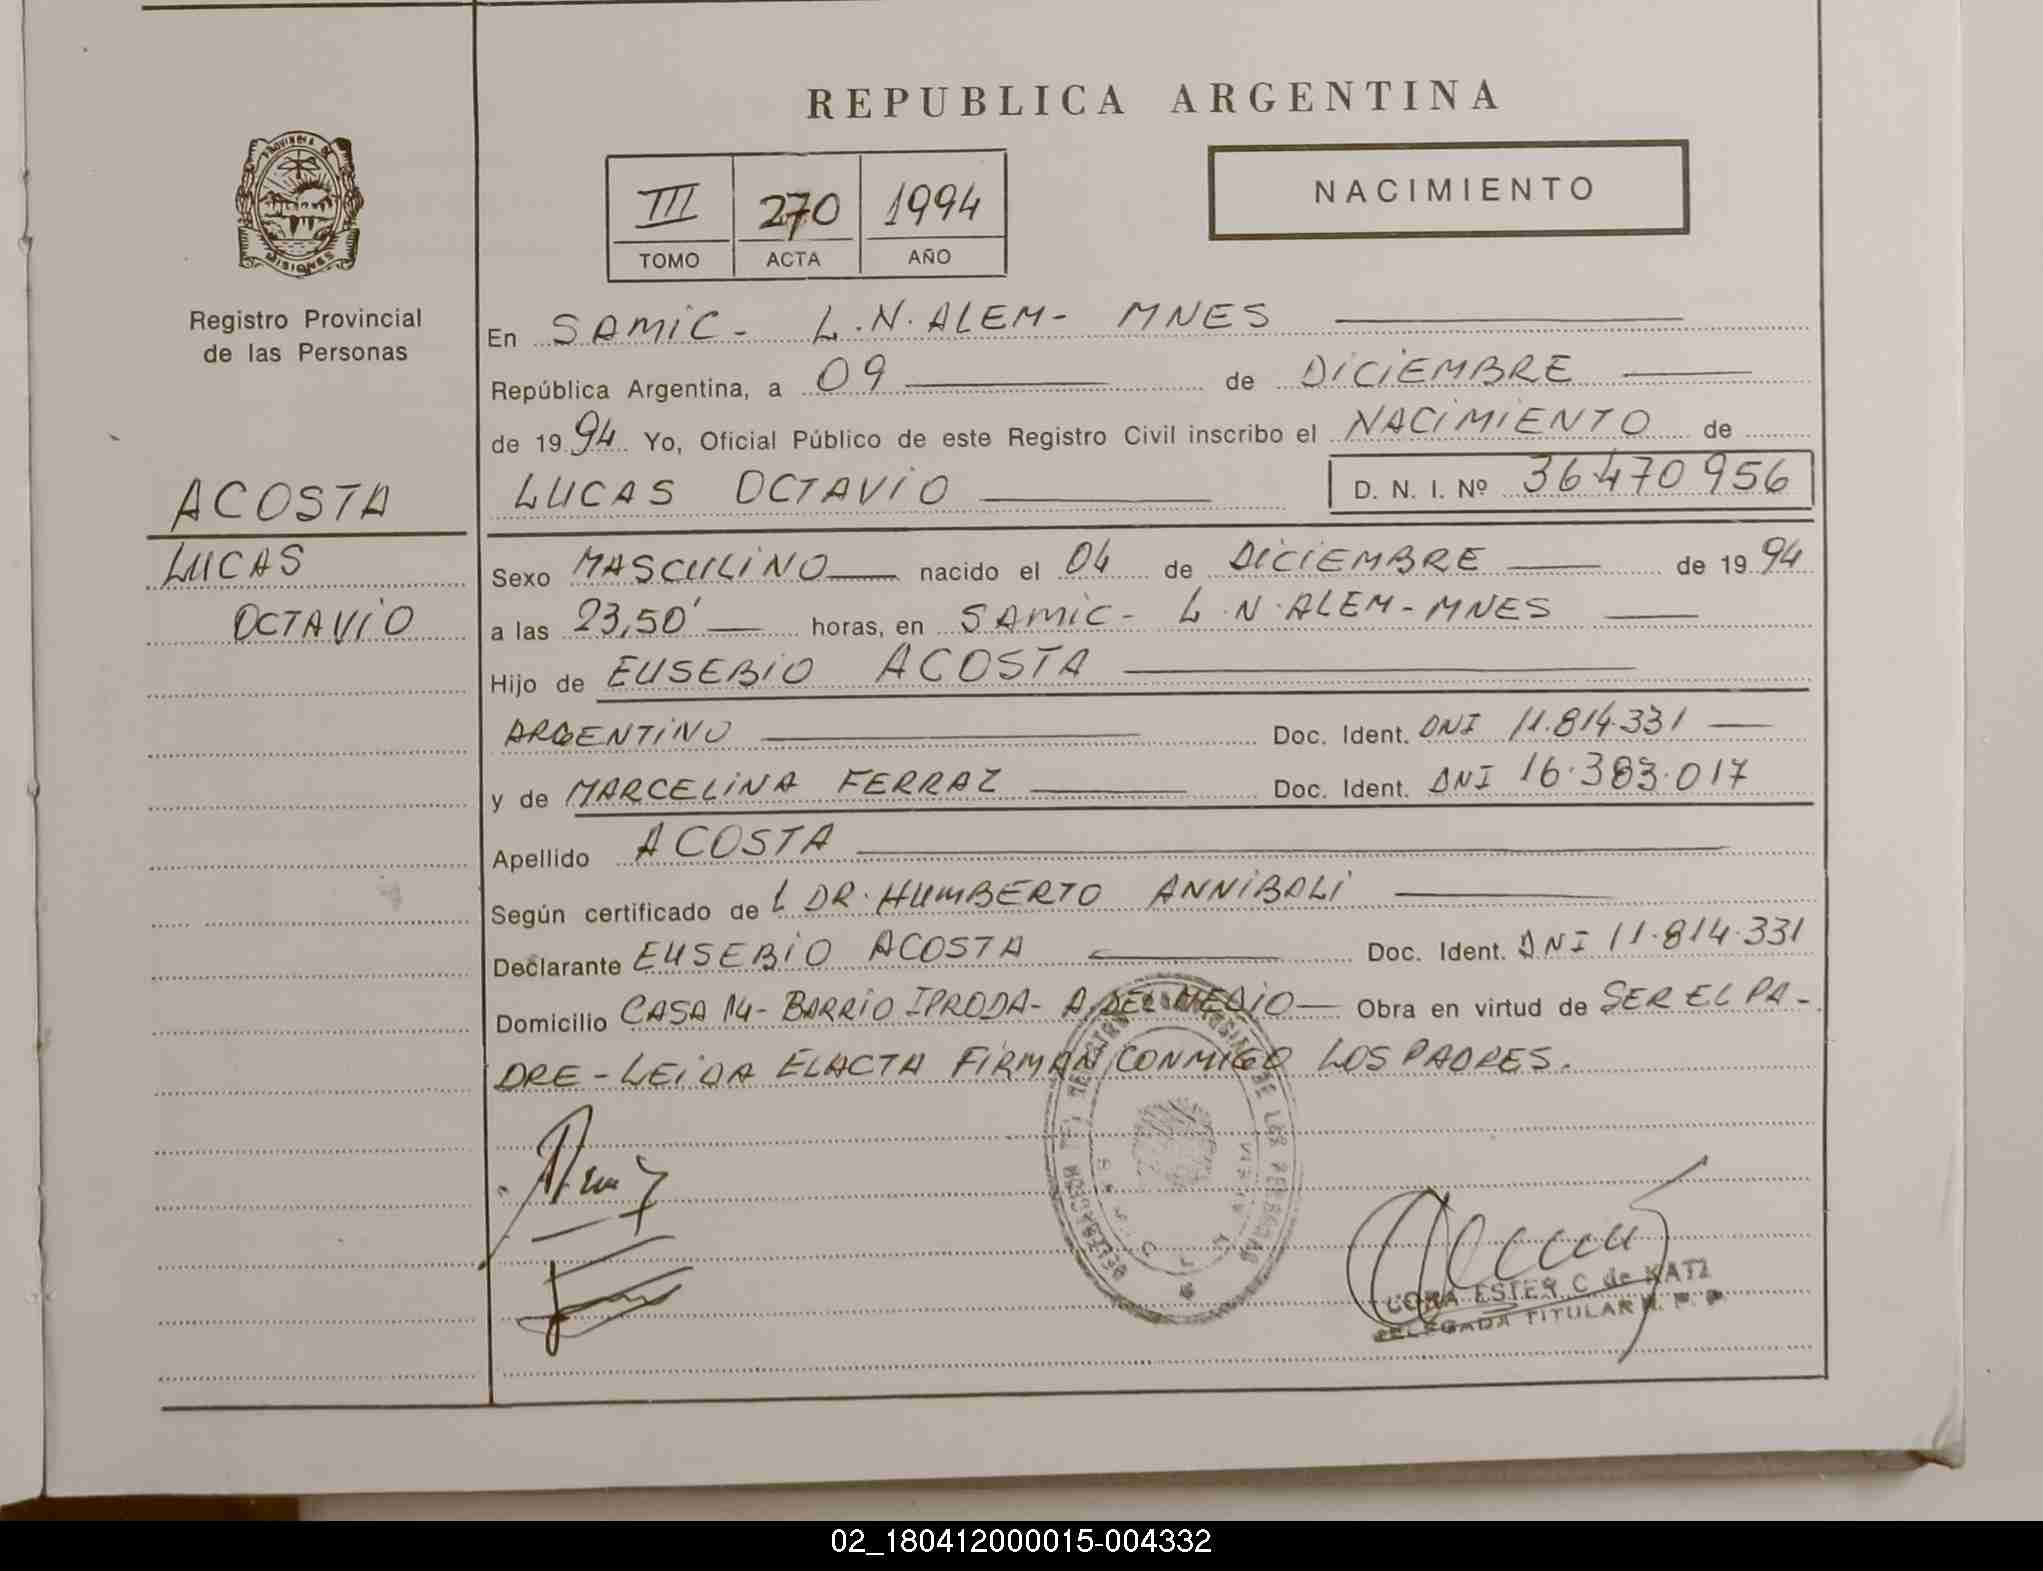 REPUBLICA ARGENTINA
PROVINCIA DE
MISIONES
III 270 1994
TOMO ACTA AÑO
NACIMIENTO
Registro Provincial
de las Personas
En SAMIC - L.N. ALEM - MNES
República Argentina, a 09 de DICIEMBRE
de 1994 Yo, Oficial Público de este Registro Civil inscribo el NACIMIENTO de
LUCAS OCTAVIO D. N. I. Nº 36470956
ACOSTA
LUCAS
OCTAVIO
Sexo MASCULINO nacido el 04 de DICIEMBRE de 1994
a las 23,50' horas, en SAMIC - L.N. ALEM - MNES
Hijo de EUSEBIO ACOSTA
ARGENTINO Doc. Ident. DNI 11.814.331
y de MARCELINA FERRAZ Doc. Ident. DNI 16.383.017
Apellido ACOSTA
Según certificado de L DR. HUMBERTO ANNIBOLI
Declarante EUSEBIO ACOSTA Doc. Ident. DNI 11.814.331
Domicilio CASA 14 - BARRIO IPRODA - A. DEL MEDIO Obra en virtud de SER EL PA-
DRE - LEIDA EL ACTA FIRMAN CONMIGO LOS PADRES.
ESTER C de KATZ
DELEGADA TITULAR R. P. P.
02_180412000015-004332